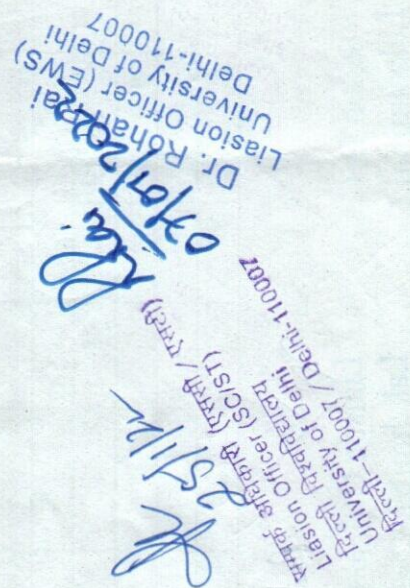 Rai
07/01/2022
Dr. Rohan Rai
Liasion Officer (EWS)
University of Delhi
Delhi-110007
25/1/22
सम्पर्क अधिकारी (एससी / एसटी)
Liasion Officer (SC/ST)
दिल्ली विश्वविद्यालय
University of Delhi
दिल्ली-110007 / Delhi-110007